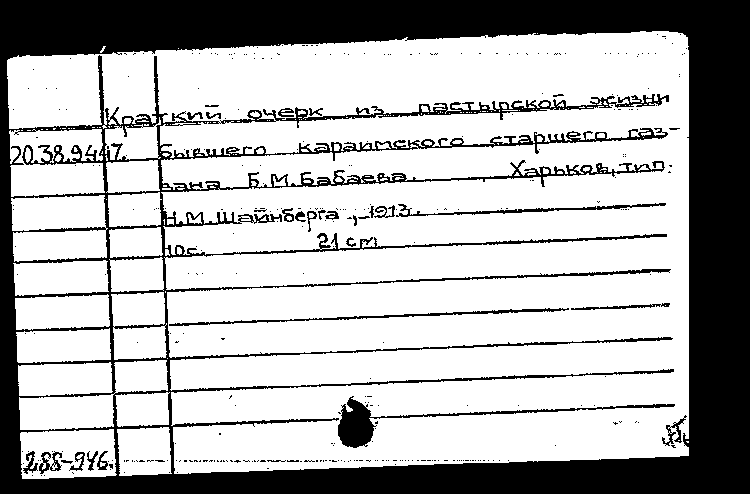 Краткий очерк из пастырской жизни
20.38.9447. бывшего караимского старшего газ-
зана Б.М.Бабаева. Харьков, тип.
Н.М.Шайнберга, 1913.
10с. 21 cm
288-946.